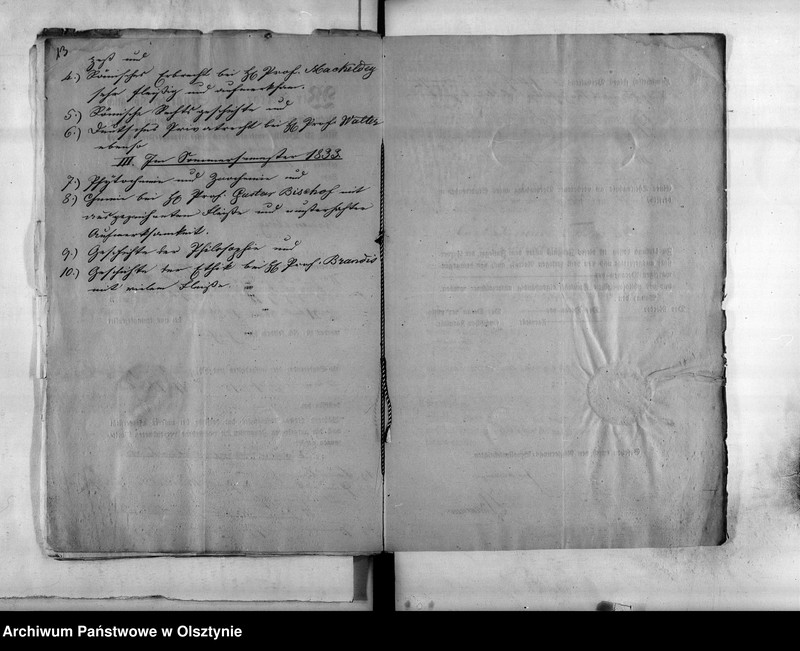 13
zeß und
4.) Römisches Erbrecht bei H. Prof. Mackeldey
sehr fleißig und aufmerksam.
5.) Römische Rechtsgeschichte und
6.) Deutsches Privatrecht bei H. Prof. Walter
ebenso
III. Im Sommersemester 1833.
7.) Phytochemie und Zoochemie und
8.) Chemie bei H. Prof. Gustav Bischof mit
ausgezeichnetem Fleiße und
Aufmerksamkeit.
9.) Geschichte der Philosophie und
10.) Geschichte der Ethik bei H. Prof. Brandis
mit vielem Fleiße.
Archiwum Państwowe w Olsztynie